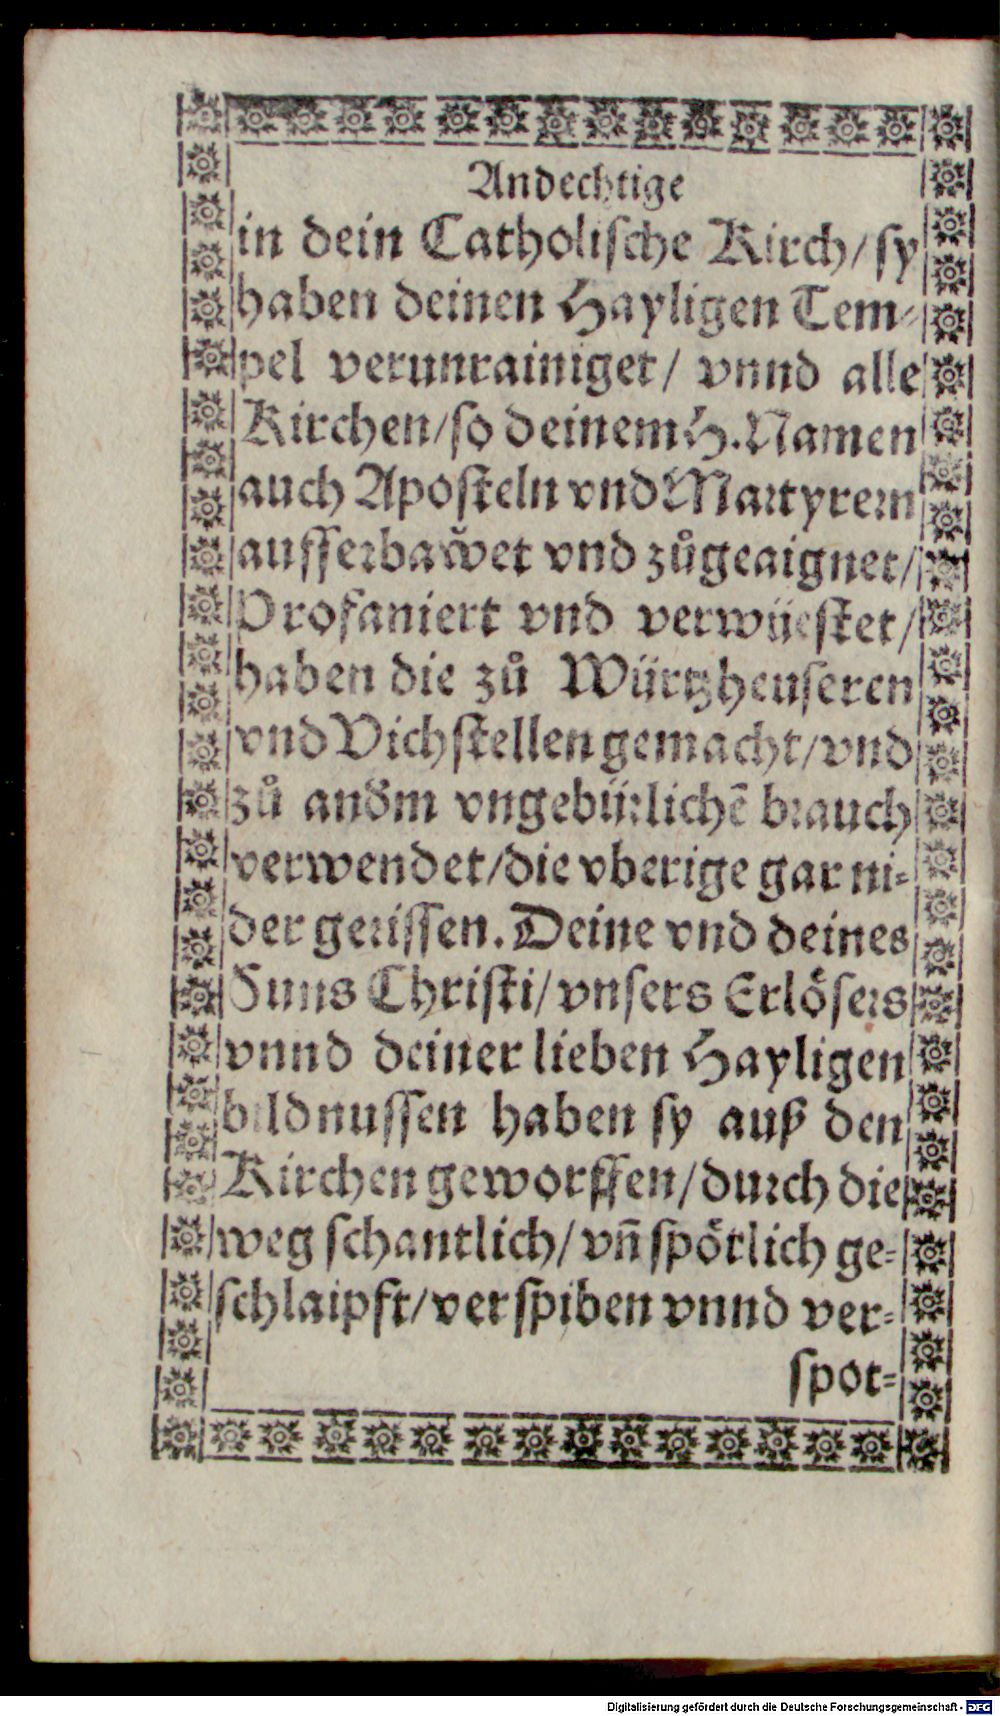 Andechtige
in dein Catholische Kirch/ sy
haben deinen Hayligen Tem-
pel verunrainiget/ vnnd alle
Kirchen/so deinem H.Namen
auch Aposteln vnd Martyrern
aufferbawet vnd zůgeaignet/
Profaniert vnd verwüestet/
haben die zů Würtzheuseren
vnd Vichstellen gemacht/vnd
zů andm̃ vngebürlichẽ brauch
verwendet/die vberige gar ni-
der gerissen. Deine vnd deines
Suns Christi/vnsers Erlösers
vnnd deiner lieben Hayligen
bildnussen haben sy auß den
Kirchen geworffen/durch die
weg schantlich/ vñ spötlich ge-
schlaipft/verspiben vnnd ver-
spot-
Digitalisierung gefördert durch die Deutsche Forschungsgemeinschaft - DFG